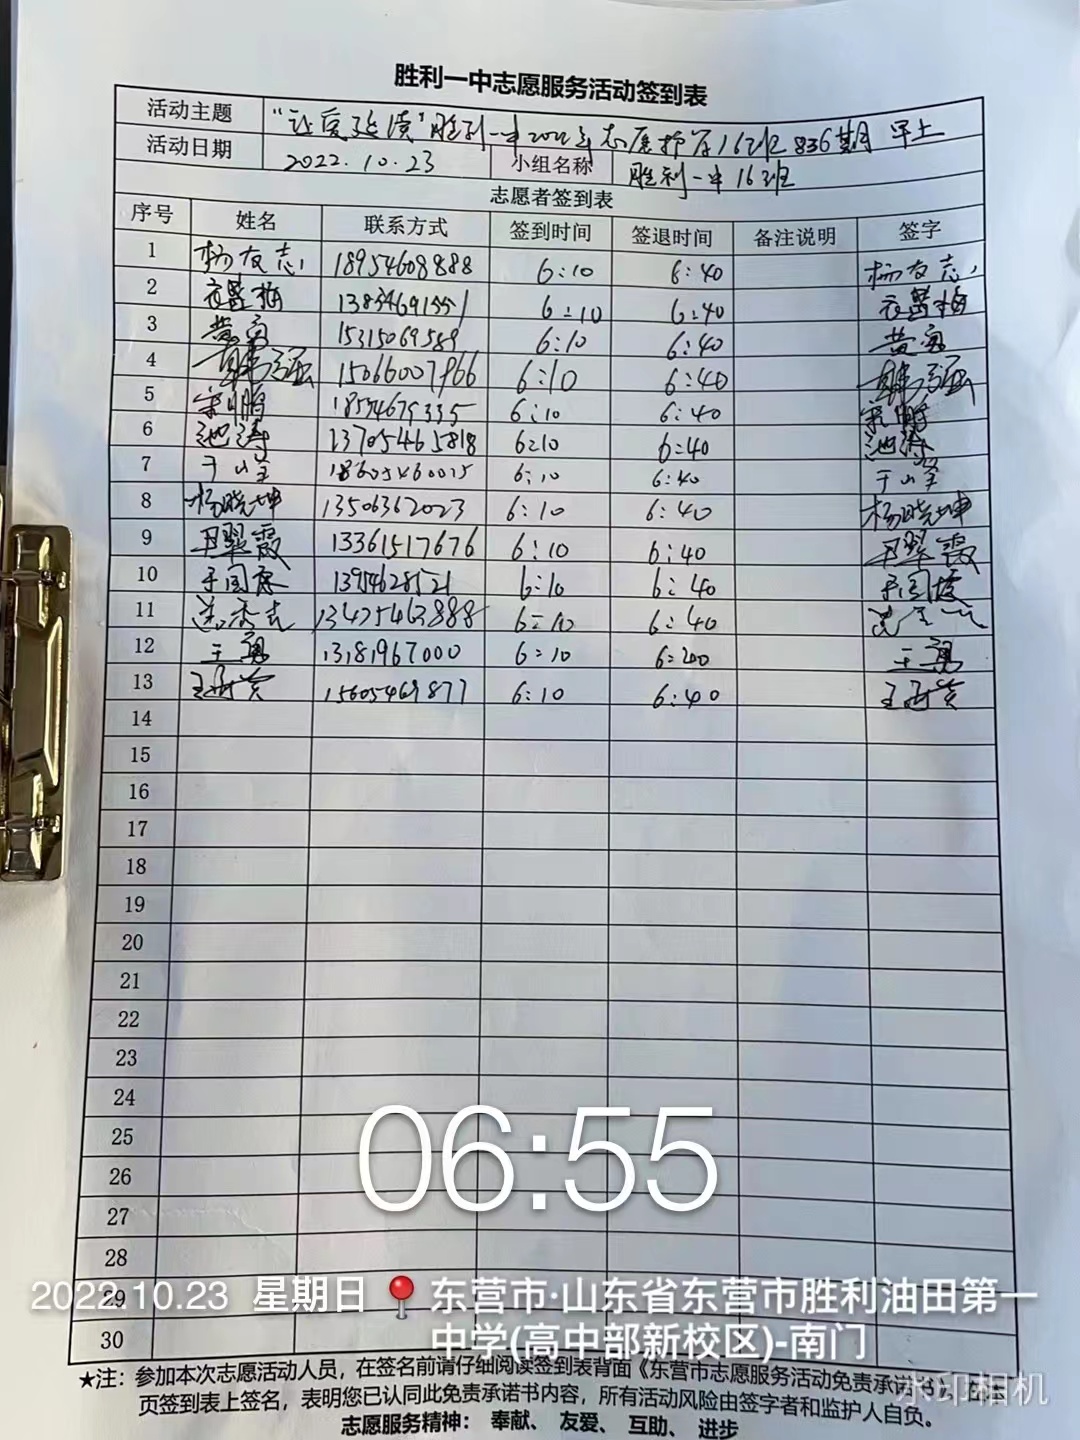 胜利一中志愿服务活动签到表
活动主题 "让爱延续"胜利一中2022年志愿护学16班836期 早上
活动日期 2022.10.23 小组名称 胜利一中16班
志愿者签到表
序号 姓名 联系方式 签到时间 签退时间 备注说明 签字
1 杨友志 18954608888 6:10 6:40 杨友志
2 13834691551 6:10 6:40
3 黄 15315069589 6:10 6:40 黄
4 韩强 15066007966 6:10 6:40 韩强
5 宋鹏 18554679335 6:10 6:40 宋鹏
6 池涛 13705465818 6:10 6:40 池涛
7 于山 18605460015 6:10 6:40 于山
8 杨晓坤 13506362023 6:10 6:40 杨晓坤
9 翠霞 13361517676 6:10 6:40 翠霞
10 于国 13954628521 6:10 6:40 于国
11 13475463888 6:10 6:40
12 王勇 13181967000 6:10 6:40 王勇
13 王 15605469877 6:10 6:40 王
14
15
16
17
18
19
20
21
22
23
24
25
26
27
28
29
30
06:55
2022.10.23 星期日 东营市·山东省东营市胜利油田第一
中学(高中部新校区)-南门
★注：参加本次志愿活动人员，在签名前请仔细阅读签到表背面《东营市志愿服务活动免责承诺书》，在
页签到表上签名，表明您已认同此免责承诺书内容，所有活动风险由签字者和监护人自负。
水印相机
志愿服务精神： 奉献、 友爱、 互助、 进步